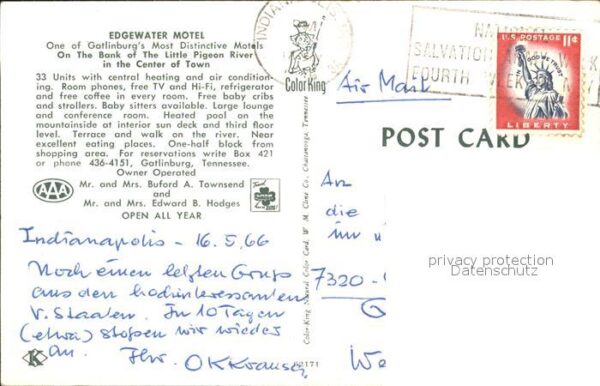 EDGEWATER MOTEL
One of Gatlinburg's Most Distinctive Motels
On The Bank of The Little Pigeon River
in the Center of Town
33 Units with central heating and air condition-
ing. Room phones, free TV and Hi-Fi, refrigerator
and free coffee in every room. Free baby cribs
and strollers. Baby sitters available. Large lounge
and conference room. Heated pool on the
mountainside at interior sun deck and third floor
level. Terrace and walk on the river. Near
excellent eating places. One-half block from
shopping area. For reservations write Box 421
or phone 436-4151, Gatlinburg, Tennessee.
Owner Operated
Mr. and Mrs. Buford A. Townsend
and
Mr. and Mrs. Edward B. Hodges
OPEN ALL YEAR
AAA
Indianapolis - 16.5.66
Noch einen letzten Gruss
aus den hochinteressanten
V. Staaten. In 10 Tagen
(etwa) stossen wir wieder
an. Ihr
K
Color King
52171
INDIANAPOLIS
NATIONAL
SALVATION ARMY WEEK
FOURTH WEEK IN MAY
U.S. POSTAGE 11¢
IN GOD WE TRUST
LIBERTY
Air Mail
POST CARD
An
die
im
7320-
privacy protection
Datenschutz